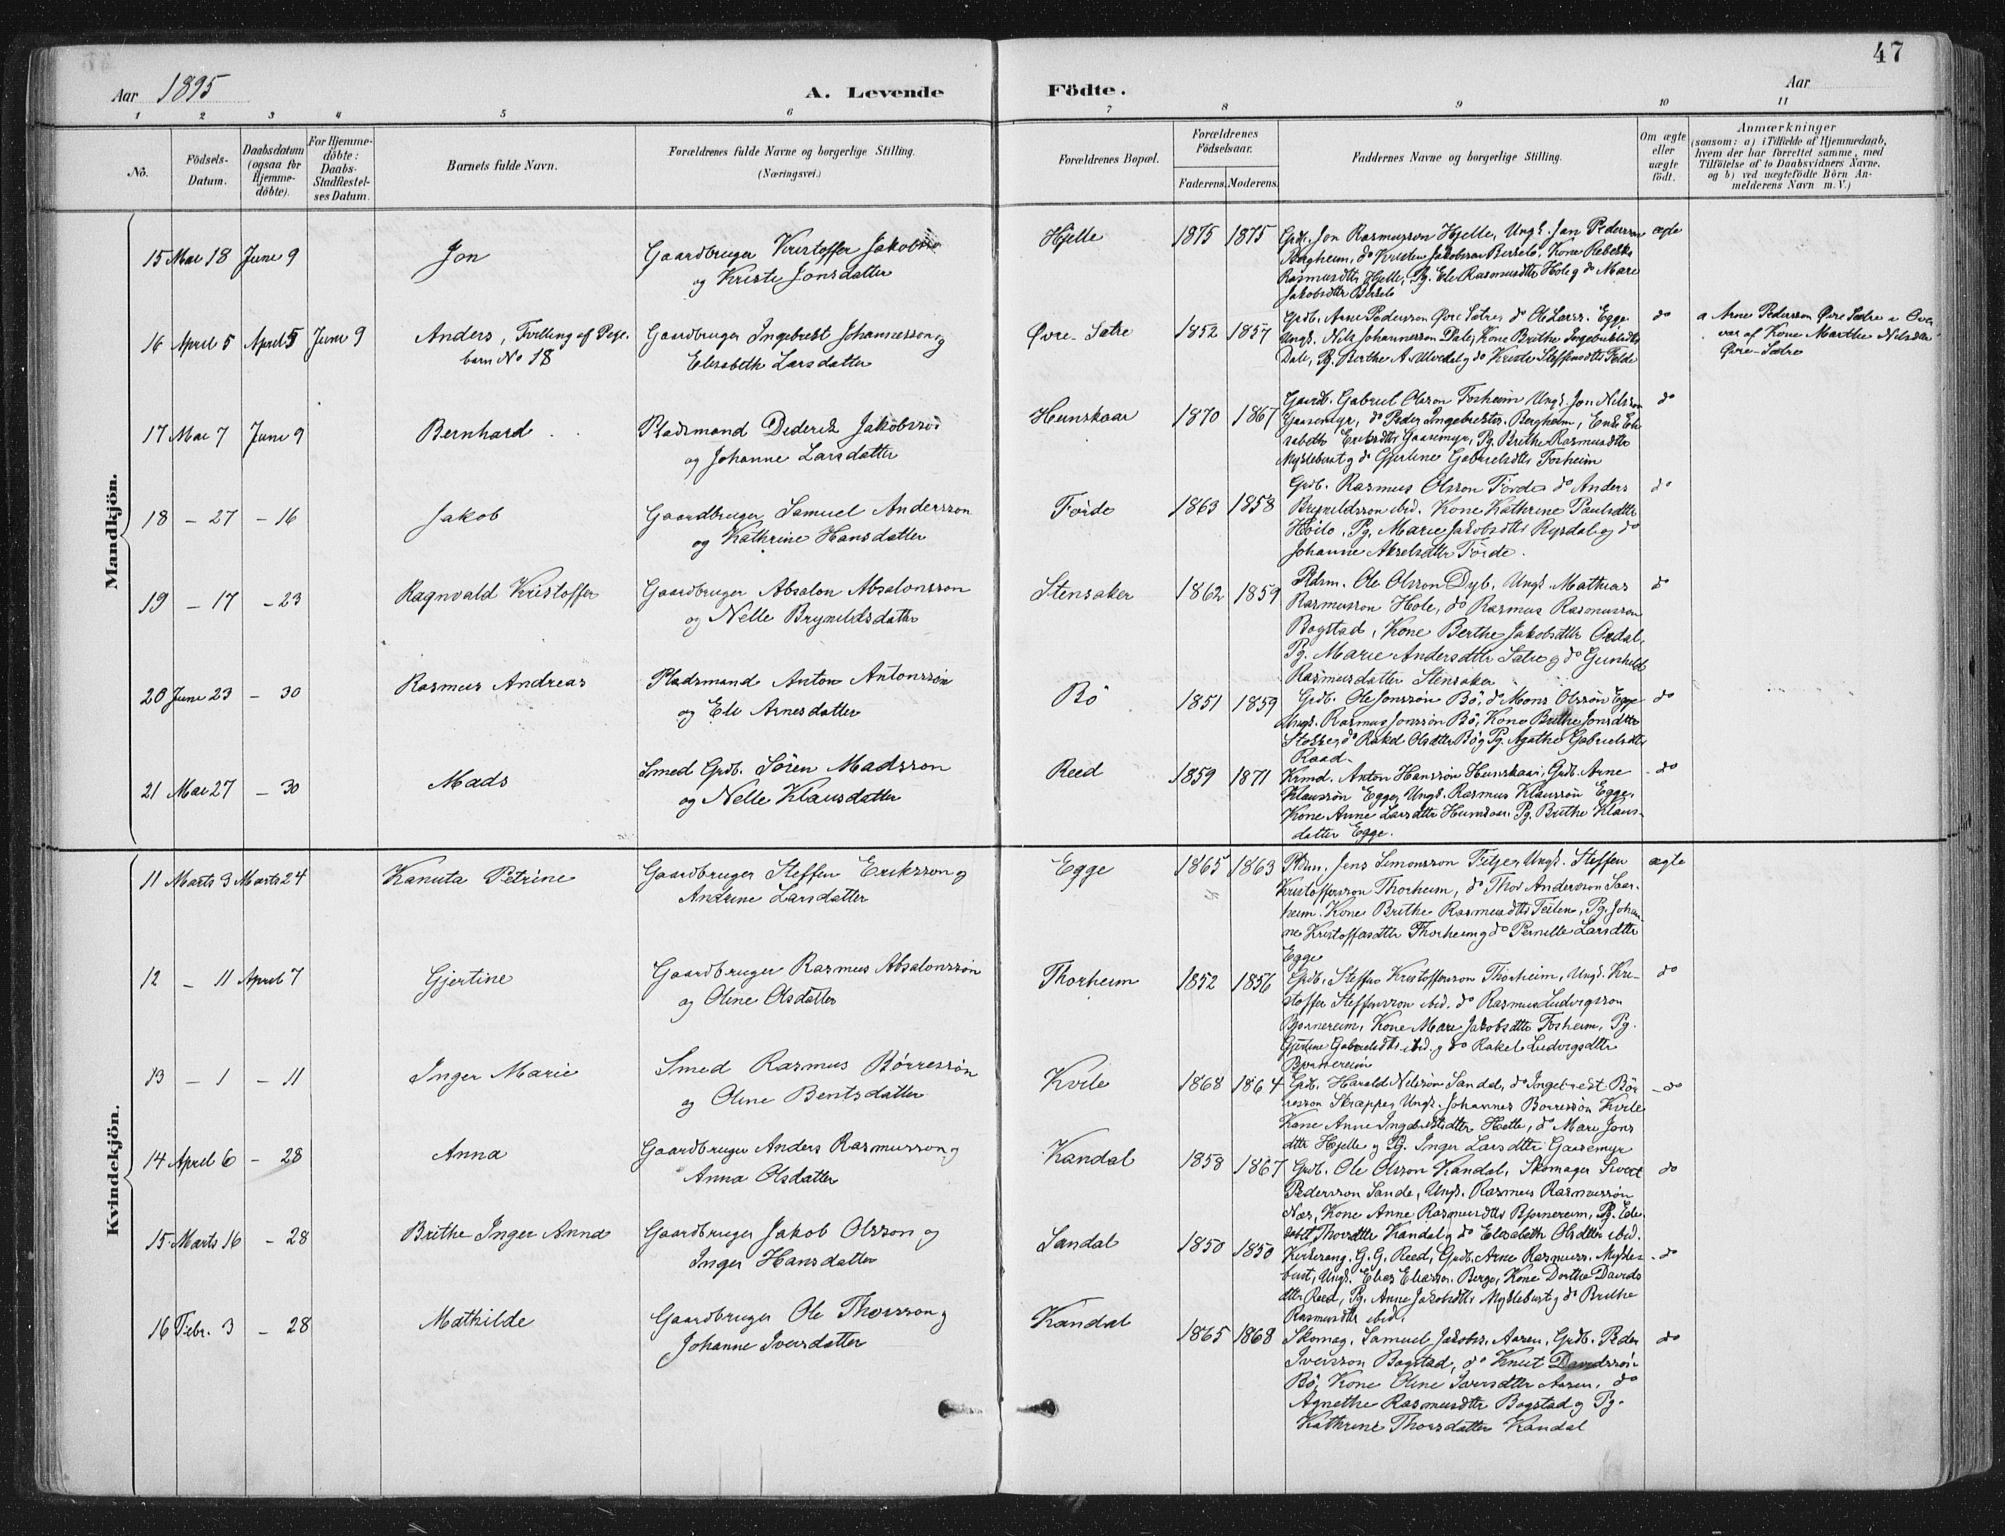 47
Aar 1895
A. Levende
Födte.
Aar
1 2 3 4 5 6 7 8 9 10 11
No.
Födsels-Datum.
Daabsdatum (ogsaa for Hjemme-döbte).
For Hjemme-döbte: Daabs-Stadfæstel-ses Datum.
Barnets fulde Navn.
Forældrenes fulde Navne og borgerlige Stilling.
(Næringsvei.)
Forældrenes Bopæl.
Forældrenes Födselsaar.
Faderens. Moderens.
Faddernes Navne og borgerlige Stilling.
Om ægte eller uægte födt.
Anmærkninger
(saasom: a) i Tilfælde af Hjemmedaab, hvem der har forrettet samme, med Tilföielse af to Daabsvidners Navne, og b) ved uægtefödte Börn Anmelderens Navn m. V.)
Mandkjön.
15 Mai 18 June 9 Jon
Gaardbruger Kristoffer Jakobsen
og Kriste Jonsdatter
Hjelle 1875 1875
Grdb. Jon Rasmusson Hjelle, Ungk. Jan Pederson
Bergheim, do Kristen Jakobson Berkelo, Kone Rebekka
Rasmusdtter Hjelle, Pg. Ele Rasmusdtter Hole og do Mari
Jakobsdtter Berkelo
ægte
16 April 5 April 5 June 9
Anders, Tvilling af Pige-
barn No 18
Gaardbruger Ingebrekt Johannesson og
Elisabeth Larsdatter
Øvre-Sætre 1852 1857
Grdb. Arne Pederson Øvre Sætre, do Ole Larss. Egge
Ungk. Nils Johannesson Dale, Kone Brithe Ingebrektdtr
Dale, Pg. Berthe A. Utvedal og do Kriste Steffensdtter Felde
do
a Arne Pederson Øvre Sætre i Over-
vær af Kone Marthe Nilsdtr
Øvre-Sætre
17 Mai 7 June 9 Bernhard
Pladsmand Diderik Jakobsson
og Johanne Larsdatter
Hunskaar 1870 1867
Gaardb. Gabriel Olsson Forheim Ungk. Jon Nilsson
Gaasemyr, do Peder Ingebrektss. Bergheim, Enke Eli-
sabeth Eriksdtter Gaasemyr, Pg. Brithe Rasmusdtter
Myklebust og do Gjertine Gabrielsdtter Forheim
do
18 - 27 - 16 Jakob
Gaardbruger Samuel Andersson
og Kathrine Hansdatter
Førde 1863 1858
Grdb. Rasmus Olsson Førde do Anders
Brynildsson ibid. Kone Kathrine Paulsdtter
Høilo, Pg. Marie Jakobsdtter Rysdal og do
Johanne Akselsdtter Førde.
do
19 - 17 - 23 Ragnvald Kristoffer
Gaardbruger Absalon Absalonsson
og Nelle Brynildsdatter
Stensaker 1862 1859
Pldsm. Ole Olsson Dyb, Ungk. Mathias
Rasmusson Hole, do Rasmus Rasmusson
Bogstad, Kone Berthe Jakobsdtter Ordal,
Pg. Marie Andersdtter Sætre og do Gunhild
Rasmusdatter Stensaker
do
20 June 23 - 30 Rasmus Andreas
Pladsmand Anton Antonssön
og Ele Arnesdatter
Bö 1851 1859
Grdb. Ole Jonssön Bö, do Mons Olssön Egge
Ungk. Rasmus Jonssön Bö, Kone Brithe Jonsdtter
do Rakel Olsdtter Bö og Pg. Agathe Gabrielsdtter
Raad.
do
21 Mai 27 - 30 Mads
Smed Grdb. Sören Madsson
og Nelle Klausdatter
Reed 1859 1871
Krmd. Anton Hanssön Hunskaar, Grdb. Arne
Klaussön Egge, Ungk. Rasmus Klaussön Egge.
Kone Anne Larsdtter Hunskaar. Pg. Brithe Klaus-
datter Egge.
do
Kvindekjön.
11 Marts 3 Marts 24 Kanuta Petrine
Gaardbruger Steffen Eriksson og
Andrine Larsdatter
Egge 1865 1863
Pldsm. Jens Simonsson Fitje, Ungk. Steffen
Kristoffersson Thorheim, do Thor Andersson Saar-
heim. Kone Brithe Rasmusdtter Teilen, Pg. Johan-
ne Kristoffersdtter Thorheim og do Pernille Larsdtter
Egge
ægte
12 - 11 April 7 Gjertine
Gaardbruger Rasmus Absalonssön
og Oline Olsdatter
Thorheim 1852 1856
Grdb. Steffen Kristoffersson Thorheim, Ungk. Kri-
stoffer Steffensson ibid. do Rasmus Ludvigsson
Bjørnereim, Kone Mari Jakobsdtter Forheim, Pg.
Gjertine Gabrielsdtter ibid. og do Rakel Ludvigsdtter
Bjørnereim
do
13 - 1 - 11 Inger Marie
Smed Rasmus Børressön
og Oline Bentsdatter
Kvile 1868 1864
Grdb. Harald Nilssön Sandal, do Ingebrekt Bör-
resson Skrappe, Ungk. Johannes Börressön Kvile
Kone Anne Ingebrektsdtter Hjelle, do Mari Jons
dtter Hjelle og Pg. Inger Larsdtter Gaasemyr
- do
14 April 6 - 28 Anna
Gaardbruger Anders Rasmusson og
Anna Olsdatter
Kandal 1858 1867
Grdb. Ole Olsson Kandal, Skomager Sivert
Pedersson Sande, Ungk. Rasmus Rasmussön
Næs, Kone Anne Rasmusdtter Bjørnereim, Pg. Eli-
sabet Thorsdtter Kandal og do Elisabeth Olsdtter ibid.
do
15 Marts 16 - 28 Brithe Inger Anna
Gaardbruger Jakob Olsson og
Inger Hansdatter
Sandal 1850 1850
Kirkesang. G. G. Reed, Grdb. Arne Rasmuss. Mykle-
bust, Ungk. Elias Eliasson Berge, Kone Dorthe Davids
dtter Reed, Pg. Anne Jakobsdtter Myklebust og do Brithe
Rasmusdtter ibid.
- do
16 Febr. 3 - 28 Mathilde
Gaardbruger Ole Thorsson og
Johanne Iversdatter
Kandal 1865 1868
Skomag. Samuel Jakobs. Aaren, Grdb. Peder
Iversson Bogstad, do Knut Davidssön
Bö, Kone Oline Iversdtter Aaren, do
Agnethe Rasmusdtter Bogstad og Pg.
Kathrine Thorsdatter Kandal
do